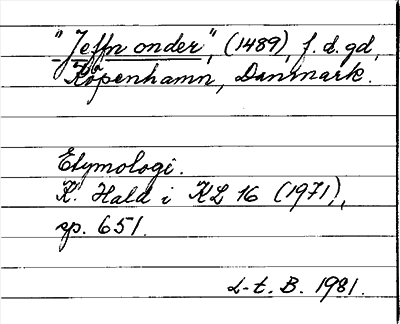 "Jeffn onder", (1489), f.d. gd,
Köpenhamn, Danmark.
Etymologi.
K. Hald i KL 16 (1971),
sp. 651.
L-t. B. 1981.